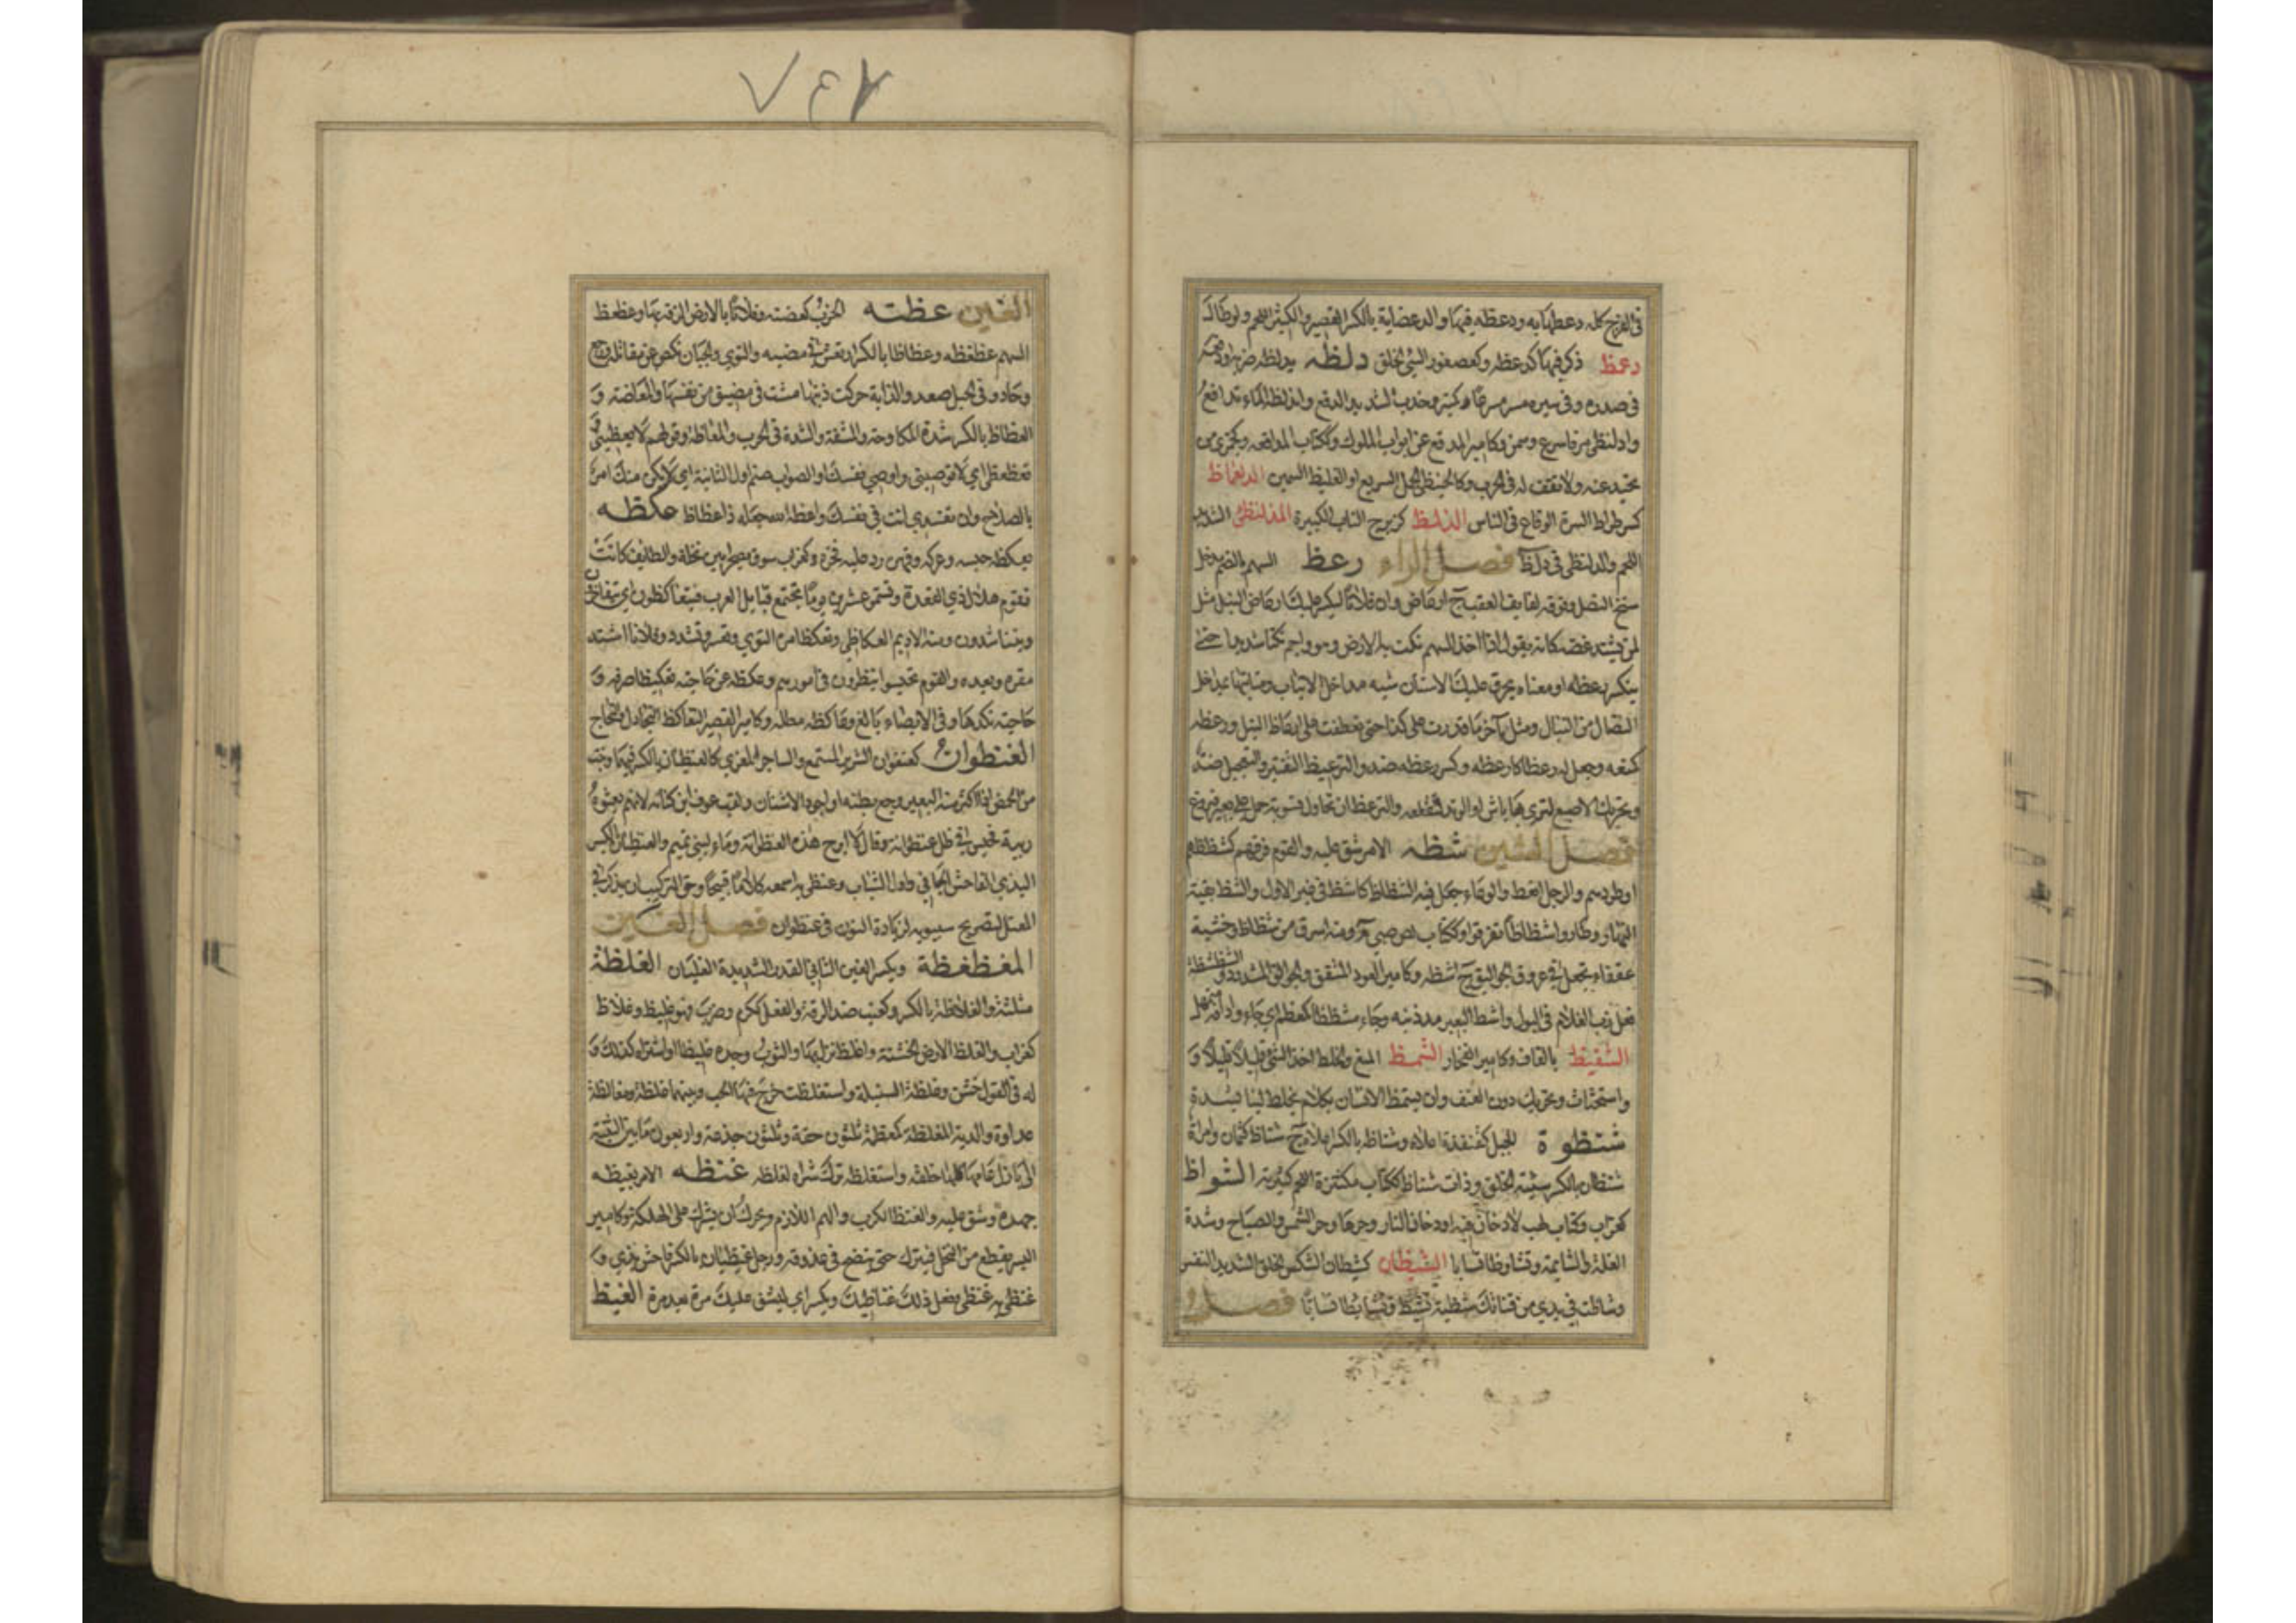 في الفرج كله دعظها به ودعظه فيها والدعضاية بالكسر القصير والكثير اللحم ولو طال
دعمظ ذكره فيها كدعظه وكعصفور السيئ الخلق دلظه يدلظه ضربه او دفعه
في صدره وفي سيره مر مسرعا وكخدب الشديد الدفع واندلظ الماء تدافع
وادلنظى مر فاسرع وسمن وكامير المدفع عن ابواب الملوك وككتاب المدافعه وكجمزى من
تحيد عنه ولا تقف له في الحرب وكالحبنظى الجمل السريع او الغليظ السمين الدلعماظ
كسرطراط الشره الوقاع في الناس الدلمظ كزبرج الناب الكبيرة المدلنظى الشديد
اللحم والدلنظى في دلظ فصل الراء رعظ السهم بالضم مدخل
سنخ النصل وفوقه لفايف العقب ج ارعاظ وان فلانا ليكسر عليك ارعاظ النبل مثل
لمن يشتد غضبه كانه يقول اذا اخذ السهم نكت به الارض وهو واجم نكتا شديدا حتى
ينكسر رعظه او معناه يحرق عليك الاسنان شبه مداخل الانياب ومنابتها بمداخل
النصال من النبال ومثل آخر ما قدرت على كذا حتى تعطفت على ارعاظ النبل ورعظه
كمنعه وجعل له رعظا كارعظه وكسر رعظه ضد والترعيظ التفتير والتعجيل ضد
وتحريك الاصبع لترى هل بها باس او الوتد لتقلعه والترعظ ان تحاول تسوية حمل على بعير فيروغ
فصل الشين شظه الامر شق عليه والقوم فرقهم كشظظهم
او طردهم والرجل انعظ والوعاء جعل فيه الشظاظ كاشظ في غير الاول والشظ بقية
النهار وطاروا شظاظا تفرقوا وككتاب لص ضبي م ومنه اسرق من شظاظ وخشبة
عقفاء تجعل في عروتي الجوالق ج اشظه وكامير العود المشقق والجوالق المشدود والشظشظة
فعل زب الغلام في البول واشظ البعير مد ذنبه وجاء مشظظا كمعظم اي جاء واداته ممهل
الشقيظ بالقاف وكامير الفخار الشمظ المنع والخلط اخذ الشيء قليلا قليلا و
واستحثاث وتحريك دون العنف وان يشمظ الانسان بكلام يخلط لينا بشدة
شنظوة الجبل كقنفذة اعلاه وشناظه بالكسر اعلاه ج شناظ كثمان وامراة
شنظيان بالكسر سيئة الخلق وذات شناظ ككتاب مكتنزة اللحم كثيرته الشواظ
كغراب وكتاب لهب لا دخان فيه او دخان النار وحرها وحر الشمس والصياح وشدة
الغلة والمشاتمة وتشاوظا تسابا الشيظان كشيطان الشكس الخلق الشديد النفس
وشاظت في يدي من قناتك شظية تشيظ وتشايظا تسابا فصل
العين عظته الحرب كعضته وفلانا بالارض الزقه بها وعظعظ
السهم عظعظه وعظعاظا بالكسر ارتعش في مضيه والتوى والجبان نكص عن مقاتله ورجع
وحاد وفي الجبل صعد والدابة حركت ذنبها ومشت في ضيق من نفسها والمعاظة و
العظاظ بالكسر شدة المكاوحة والمشقة والشدة في الحرب والمعاظة وقولهم لا تعظيني و
تعظعظي اي لا توصيني واوصي نفسك او الصواب ضم اول الثانية اي لا يكن منك امر
بالصلاح وان تفسدي انت في نفسك واعظه الله جعله ذا عظاظ عكظه
يعكظه حبسه وعركه وقهره ورد عليه فخره وكغراب سوق بصحراء بين نخلة والطائف كانت
تقوم هلال ذي القعدة وتستمر عشرين يوما تجتمع قبايل العرب فيتعاكظون اي يتفاخرون
ويتناشدون ومنه الاديم العكاظي وتعكظ امره التوى وتعسر وتشدد وفلان اشتد
سفره وبعد والقوم تحبسوا ينظرون في امورهم وعكظه عن حاجته تعكيظا صرفه و
حاجته نكدها وفي الايصاء بالغ وعاكظه مطله وكامير القصير التعاكظ التجادل والتحاج
العنظوان كعنفوان الشرير المسمع والساحر المغري كالعنظيان بالكسر فيهما ونبت
من الحمض اذا اكثر منه البعير وجع بطنه او اجود الاشنان ولقب عوف بن كنانة لانهم بعثوه
ربيئة فجلس في ظل عنظوانة وقال لا ابرح هذه العنظوانة وماء لبني تميم والعنظيان بالكسر
البذي الفاحش الجافي واول الشباب وعنظى به اسمعه كلاما قبيحا وحق التركيب ان يذكر في
المعتل لتصريح سيبويه بزيادة النون في عنظوان فصل الغين
المغظغظة ويكسر الغين الثاني القدر الشديدة الغليان الغلظة
مثلثة والغلاظة بالكسر وكعنب ضد الرقة والفعل ككرم وضرب فهو غليظ وغلاظ
كغراب والغلظ الارض الخشنة واغلظ نزل بها والثوب وجده غليظا او اشتراه كذلك و
له في القول خشن وغلظت السنبلة واستغلظت خرج فيها الحب وبينهما غلظة ومغالظة
عداوة والدية المغلظة كمعظمة ثلثون حقة وثلثون جذعة واربعون ما بين الثنية
الى بازل عامها كلها خلفة واستغلظه ترك شراه لغلظه غنظه الامر يغنظه
جهده وشق عليه والغنظ الكرب والهم اللازم ويحرك وان يشرف على الهلكة وكامير
البسر يقطع من النخل فيترك حتى ينضج في عذوقه ورجل غنظيان بالكسر فاحش بذي و
غنظى به غنظى بفعل ذلك غناظيك ويكسر اي ليشق عليك مرة بعد مرة الغيظ